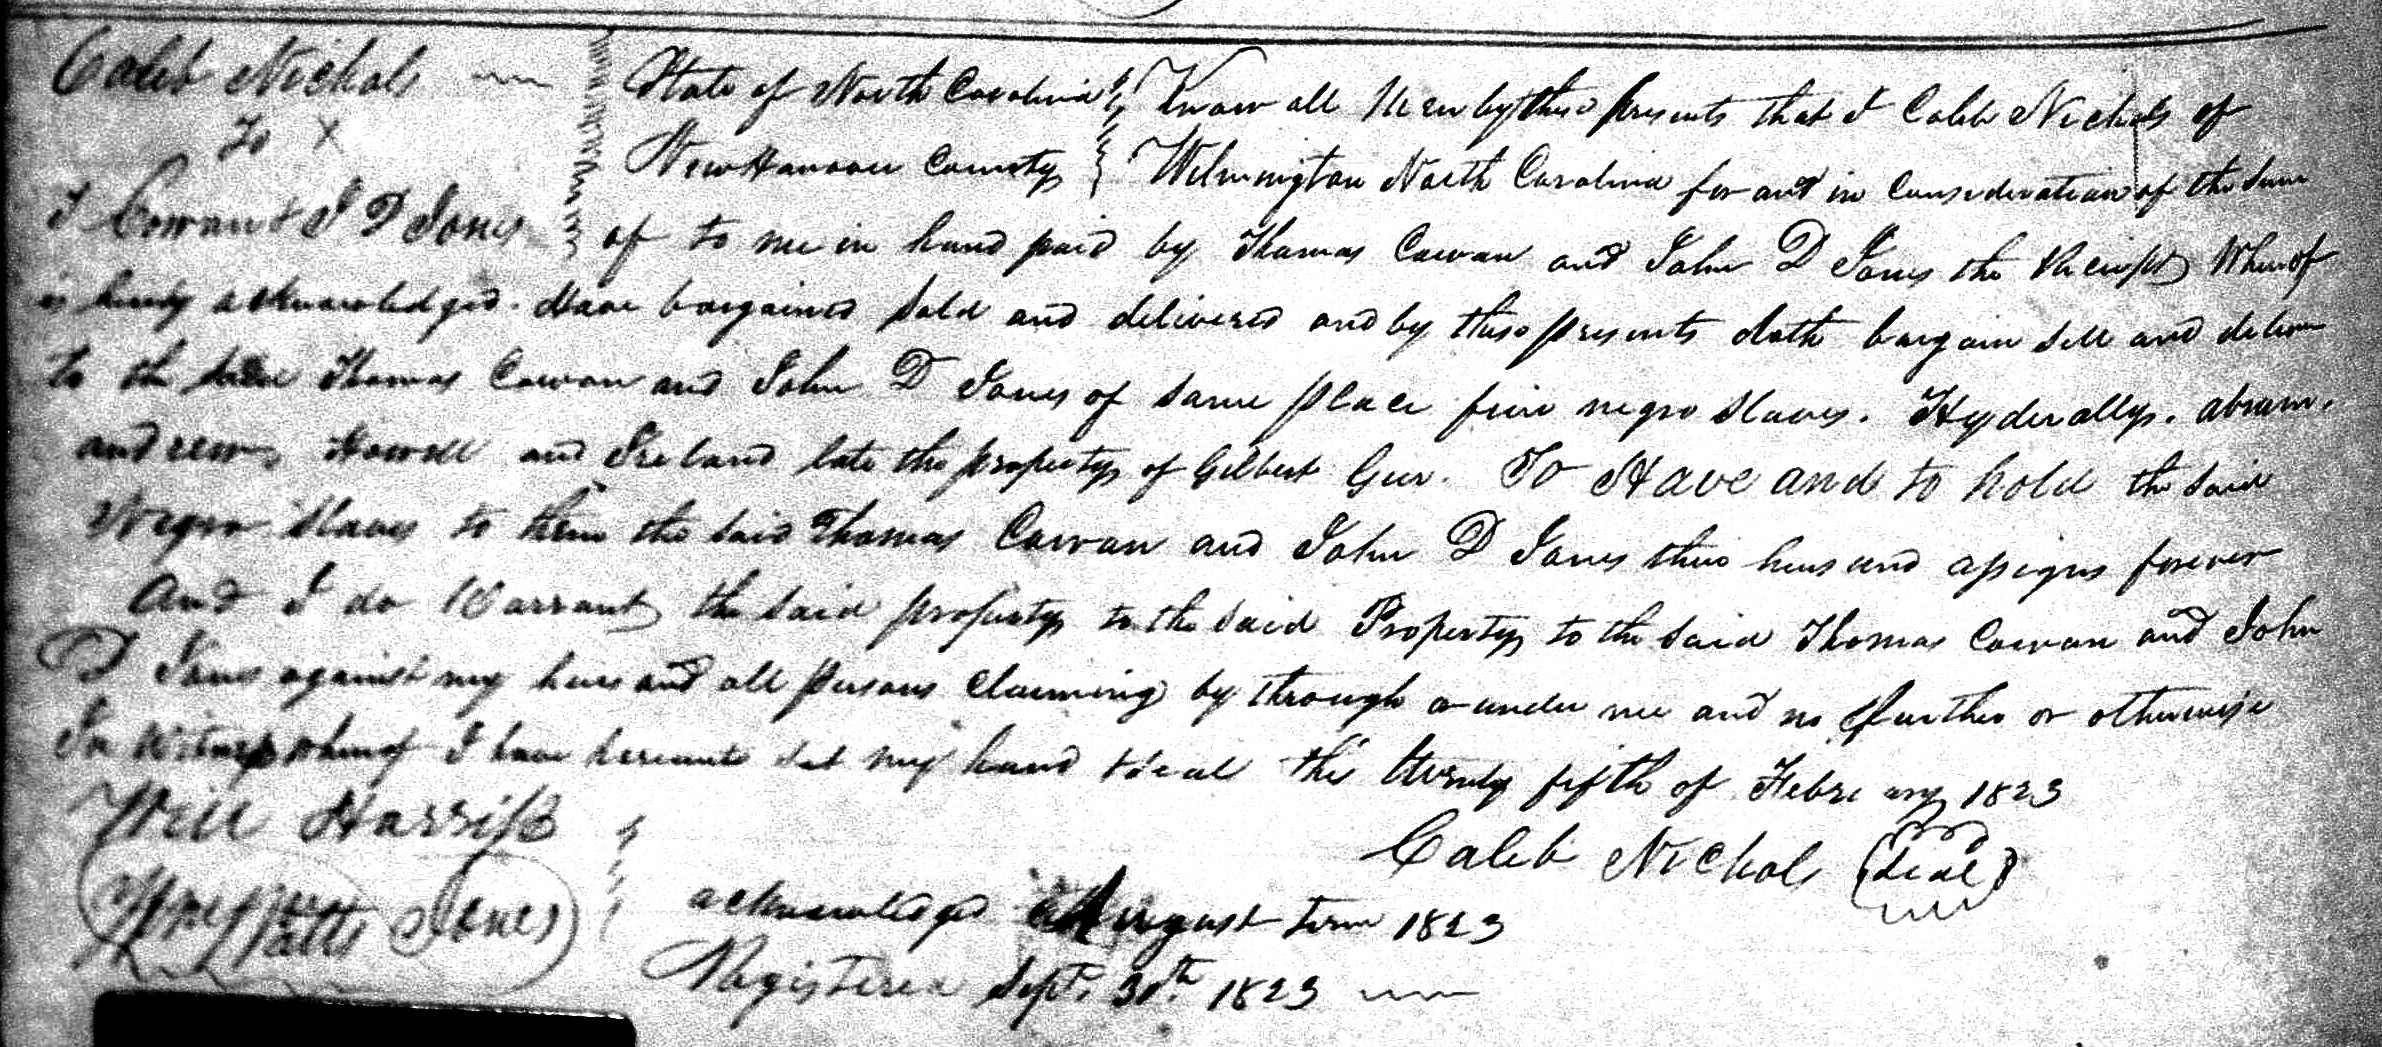 Caleb Nichols
To X
T Cowan & J D Jones
State of North Carolina
New Hanover County
Know all Men by these presents that I Caleb Nichols of
Wilmington North Carolina for and in Consideration of the Sum
of to me in hand paid by Thomas Cowan and John D Jones the Receipt Whereof
is hereby acknowledged. Have bargained Sold and delivered and by these presents doth bargain Sell and deliver
to the said Thomas Cowan and John D Jones of Same place five negro Slaves. Hyderally. abram.
andrew, Howell and Ireland late the property of Gilbert Geer. To Have and to hold the said
Negro Slaves to them the said Thomas Cowan and John D Jones their heirs and assigns forever
And I do Warrant the said property to the said Property to the said Thomas Cowan and John
D Jones against my heirs and all persons Claiming by through or under me and no further or otherwise
In Witness whereof I have hereunto set my hand & Seal this twenty fifth of February 1823
Will Harriss
Caleb Nichols (Seal)
Jones
acknowledged August term 1823
Registered Sept. 30th. 1823